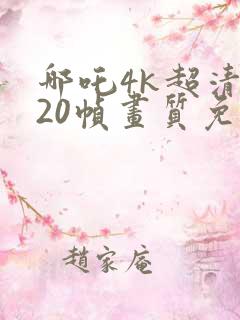 哪吒4k超清
20幀畫質免
趙家庵